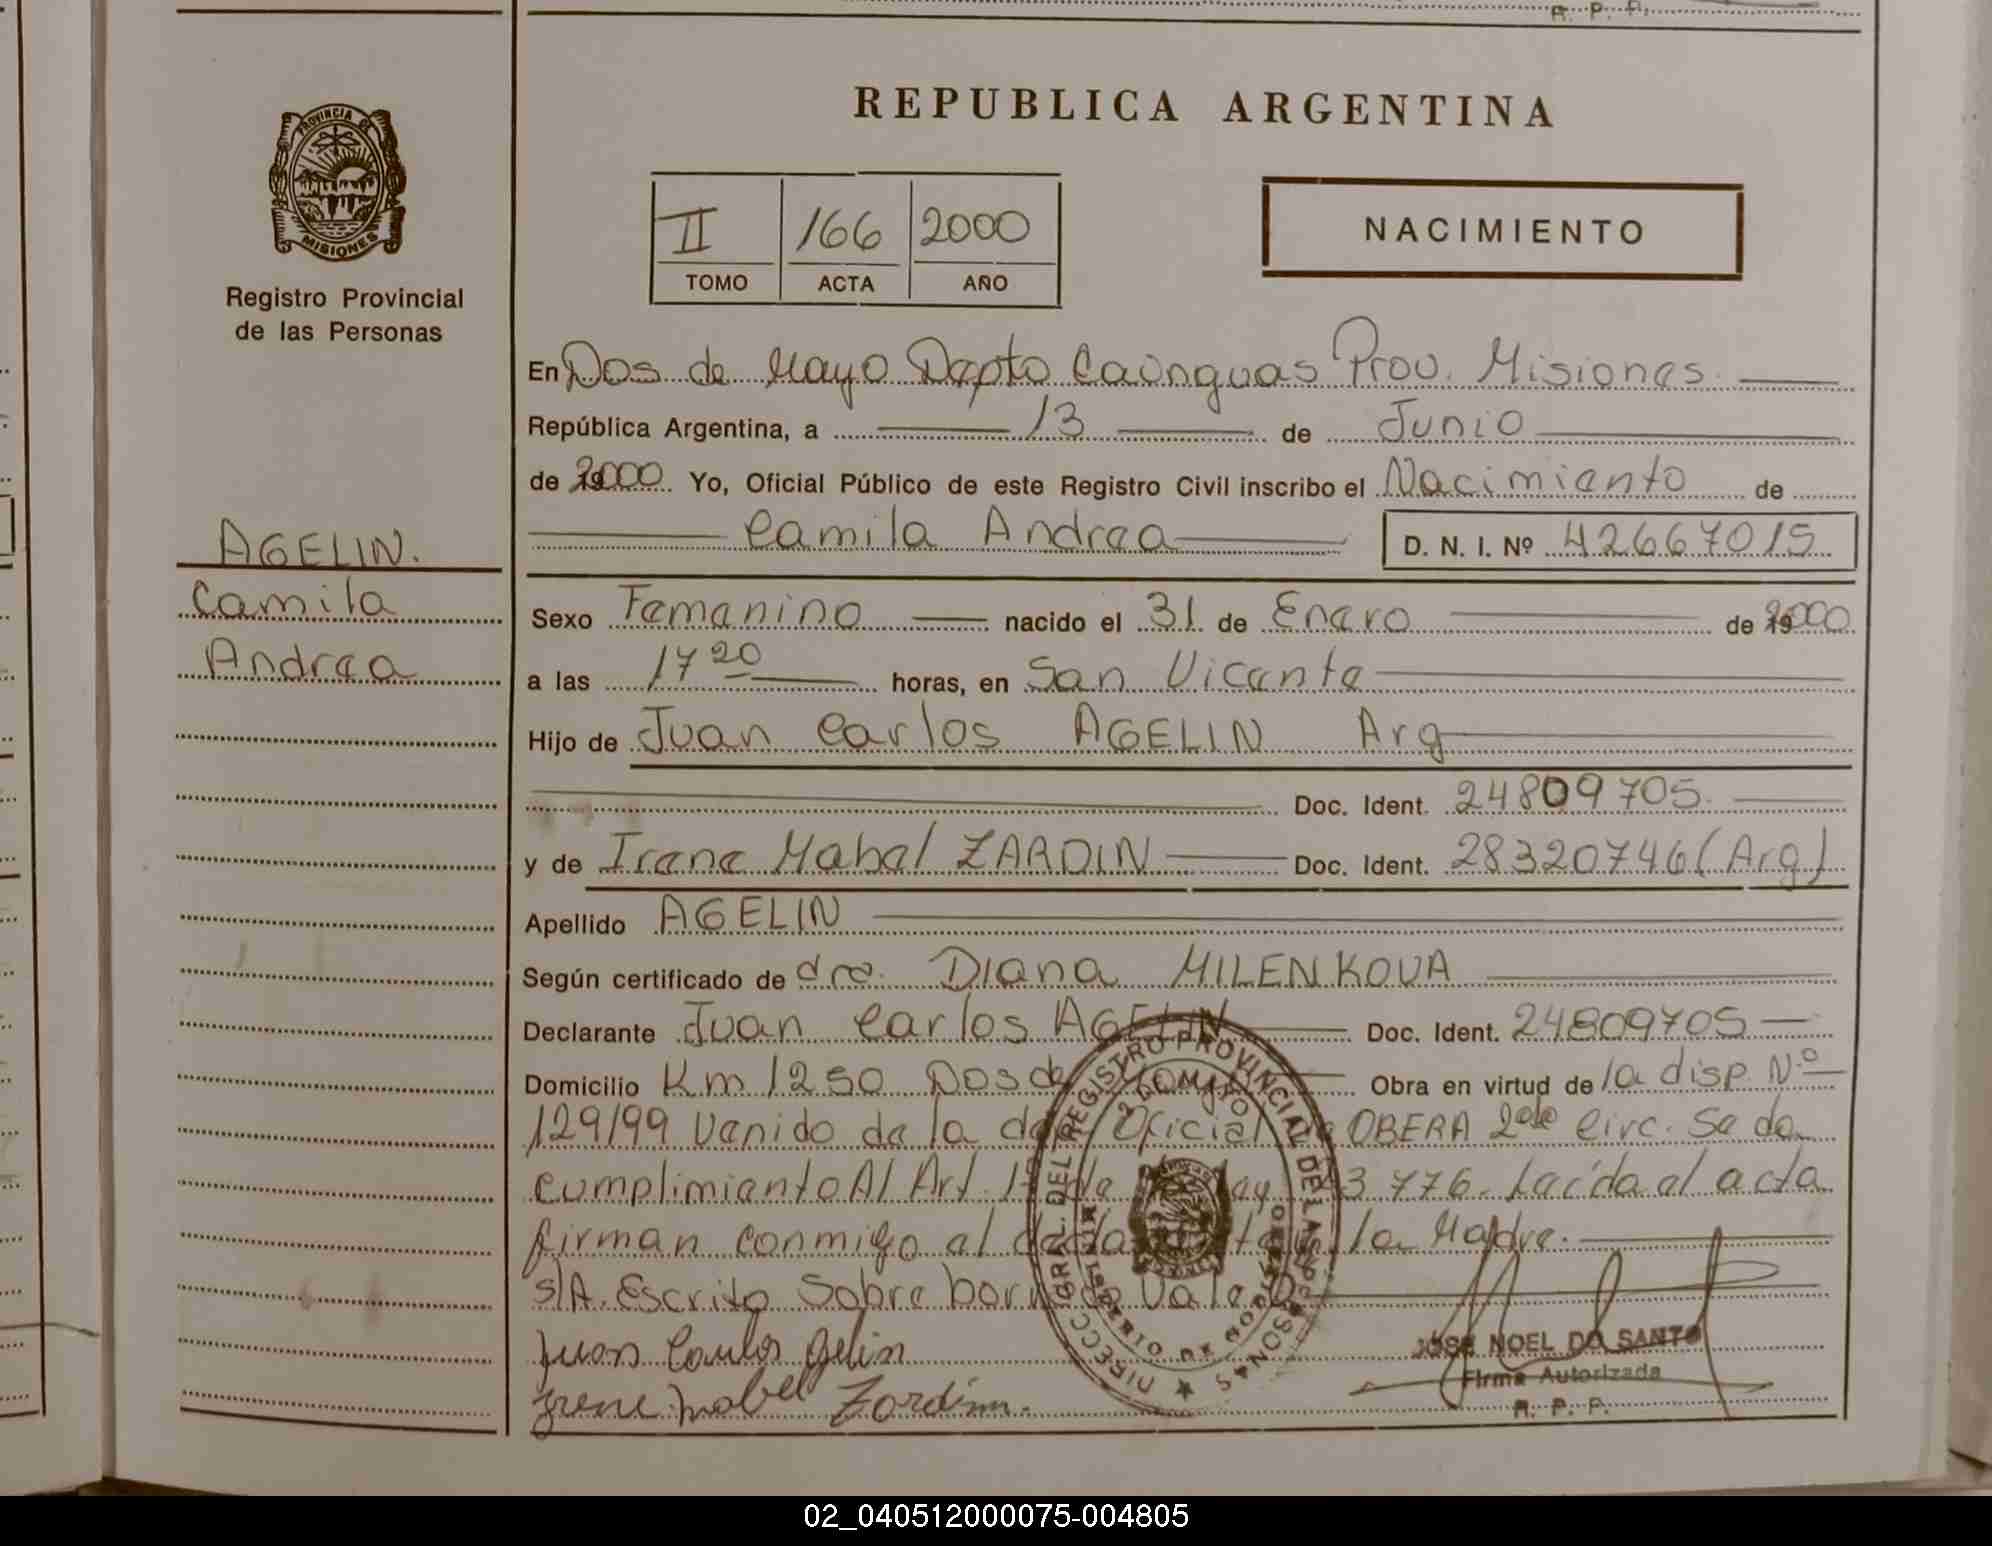 R. P. P.
REPUBLICA ARGENTINA
PROVINCIA DE
MISIONES
Registro Provincial
de las Personas
II 166 2000
TOMO ACTA AÑO
NACIMIENTO
En Dos de Mayo Depto Cainguas Prov. Misiones.
República Argentina, a 13 de Junio
de 2000 Yo, Oficial Público de este Registro Civil inscribo el Nacimiento de
Camila Andrea D. N. I. Nº 42667015
AGELIN.
Camila
Andrea
Sexo Femenino nacido el 31 de Enero de 2000
a las 17 20 horas, en San Vicente
Hijo de Juan Carlos AGELIN Arg
Doc. Ident. 24809705.
y de Irene Mabel ZARDIN Doc. Ident. 28320746 (Arg)
Apellido AGELIN
Según certificado de dra. Diana MILENKOVA
Declarante Juan Carlos AGELIN Doc. Ident. 24809705
Domicilio Km 1250 Dos de Mayo Obra en virtud de la disp. Nº
129/99 Venido de la Oficial OBERA 2da Circ. Se da
cumplimiento Al Art. 3.776. Leída el acta
firman conmigo el la Madre.
S/A. Escrito Sobre borrado Vale
Juan Carlos Gelin
Irene Mabel Zardin.
DIRECC. GRAL. DEL REGISTRO PROVINCIAL DE LAS PERSONAS
2 DE MAYO
JOSE NOEL DO SANTO
Firma Autorizada
R. P. P.
02_040512000075-004805